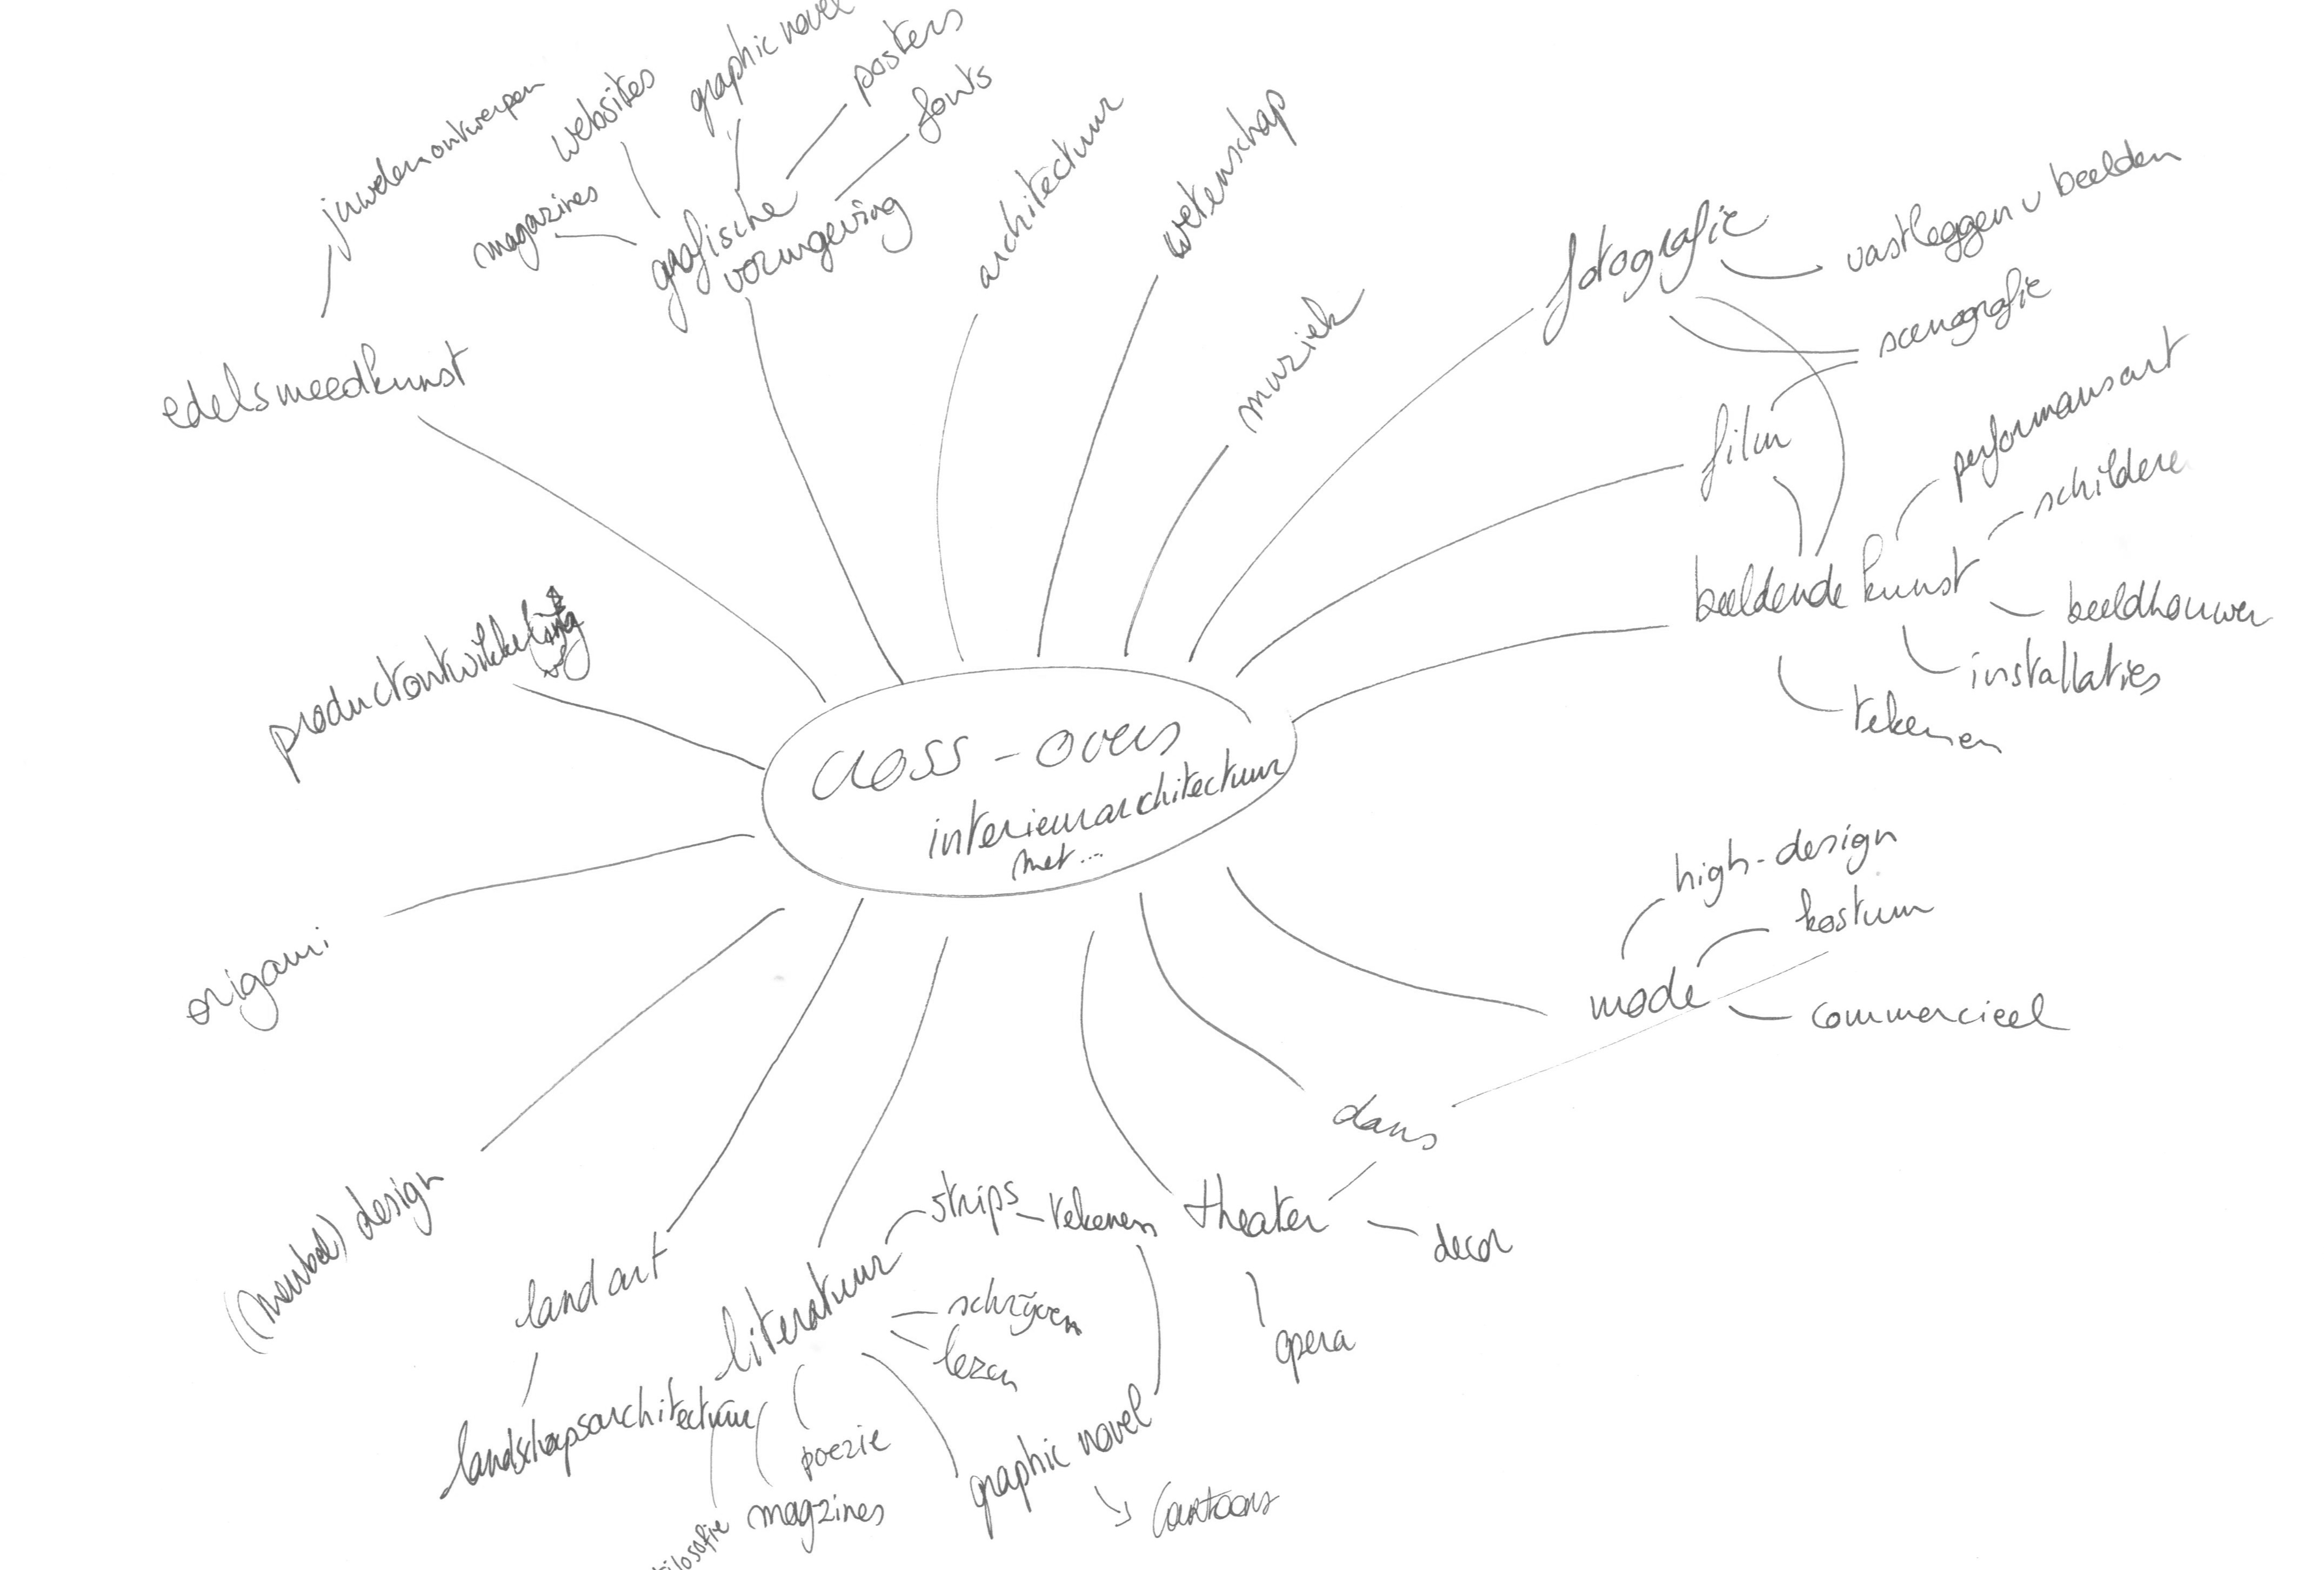 cross-overs
interieurarchitectuur
met...
edelsmeedkunst
juwelenontwerpen
grafische
vormgeving
magazines
websites
graphic novel
posters
fonts
architectuur
wetenschap
muziek
fotografie
vastleggen v beelden
scenografie
film
beeldende kunst
performansart
schildere
beeldhouwen
installaties
tekenen
mode
high-design
kostuum
commercieel
dans
theater
decor
opera
literatuur
strips - tekenen
schrijven
lezen
graphic novel
cartoons
poezie
magzines
landart
landschapsarchitectuur
(meubel) design
origami
productontwikkeling